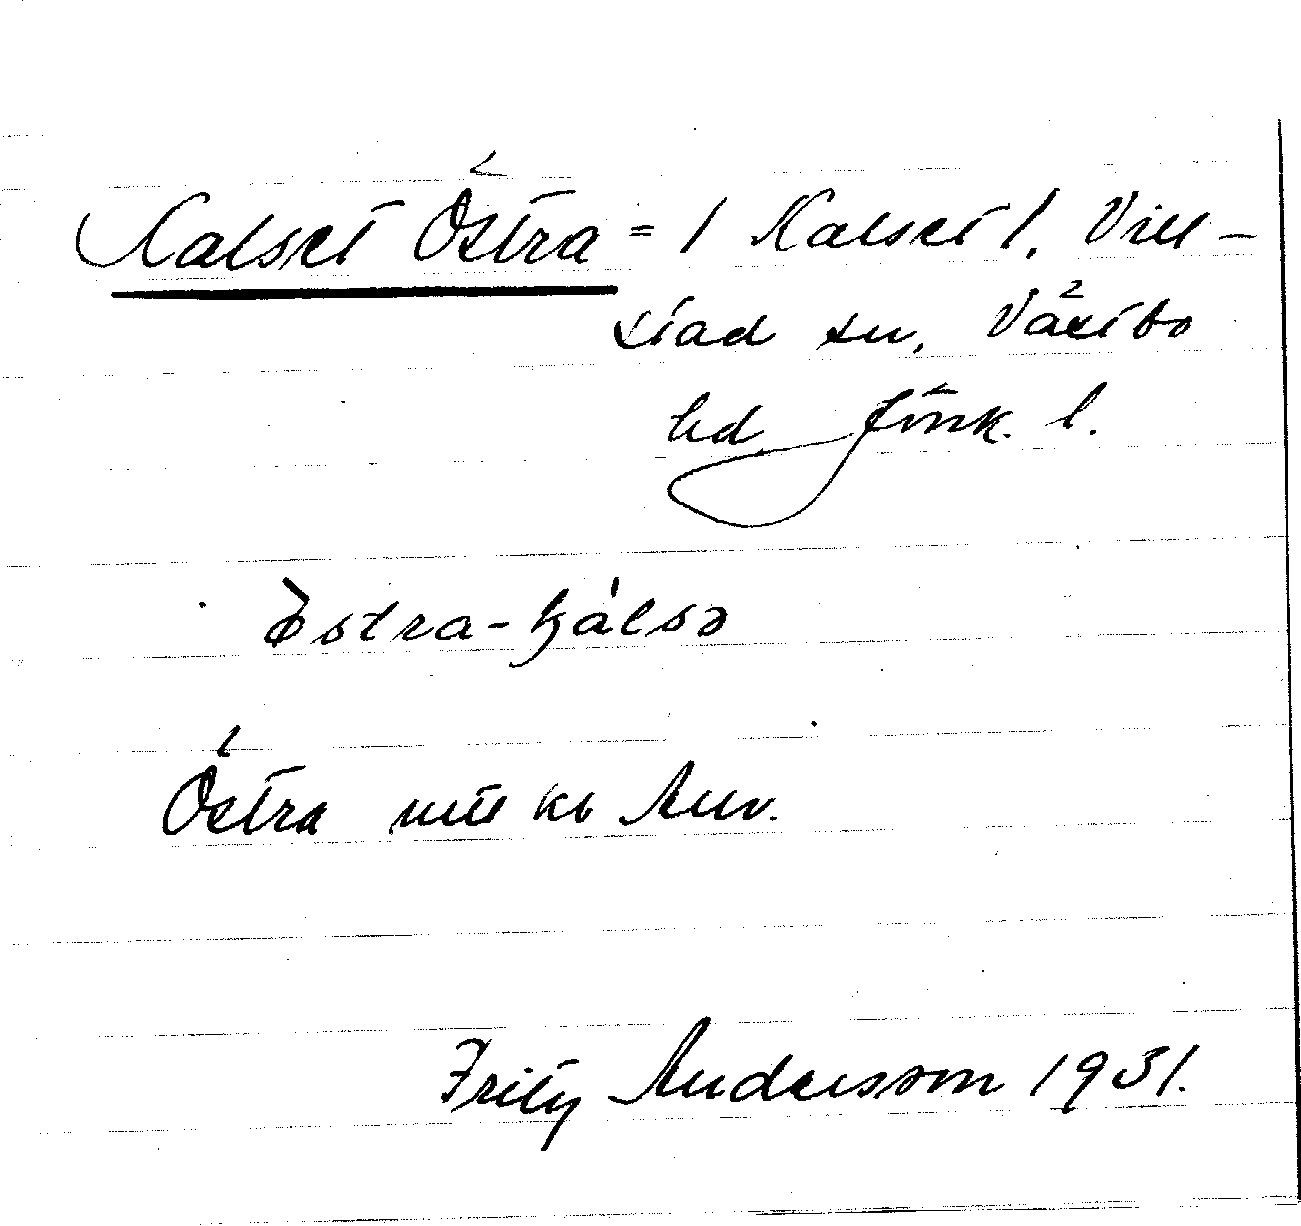 Kalset Östra = / Kalset /. Vill-
stad sn, Västbo
hd Jönk. l.
östra-kálsə
Östra
Fritz Andersson 1931.